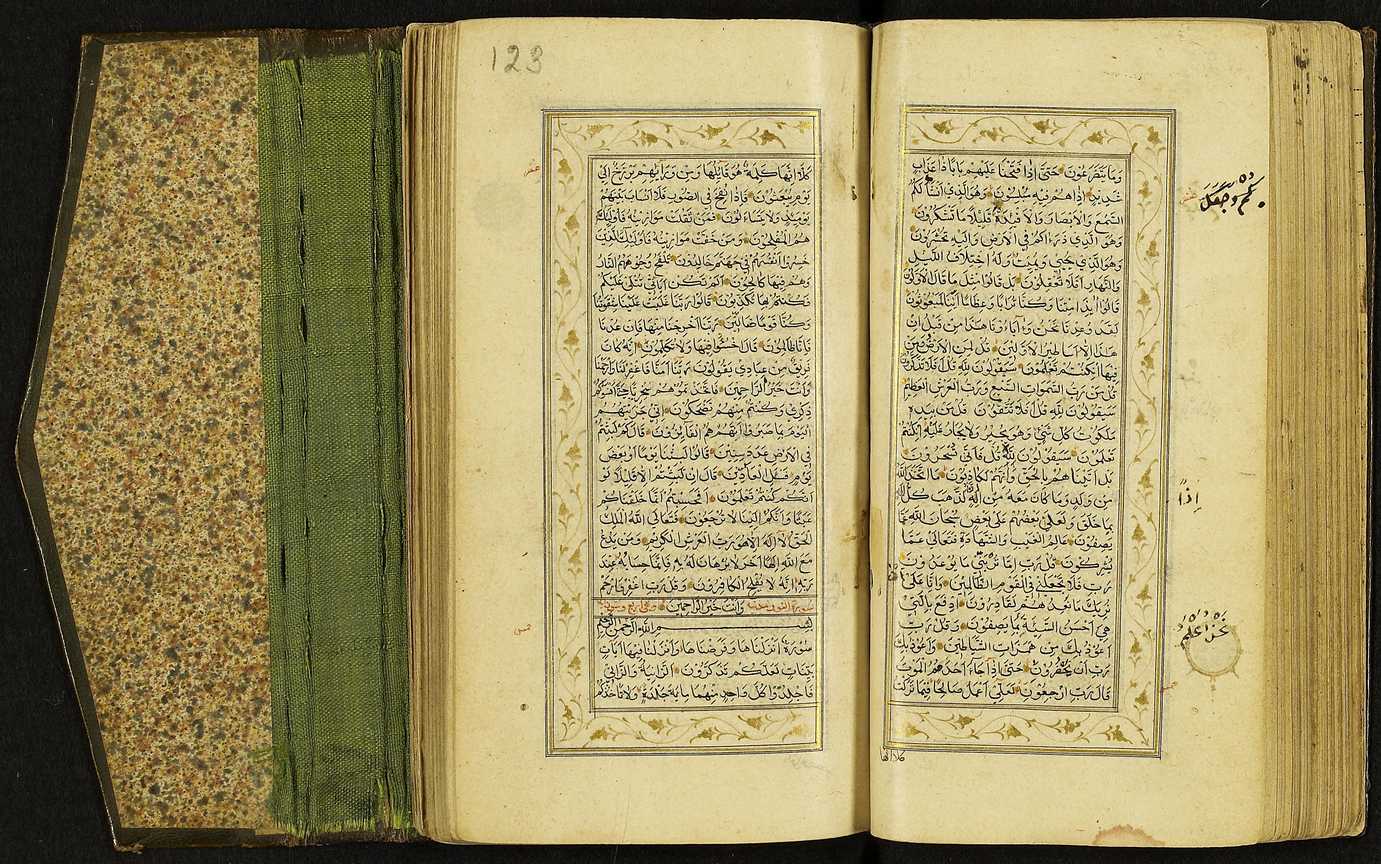 وَمَا يَتَضَرَّعُونَ حَتَّى إِذَا فَتَحْنَا عَلَيْهِمْ بَابًا ذَا عَذَابٍ
شَدِيدٍ إِذَا هُمْ فِيهِ مُبْلِسُونَ وَهُوَ الَّذِي أَنْشَأَ لَكُمُ
السَّمْعَ وَالْأَبْصَارَ وَالْأَفْئِدَةَ قَلِيلًا مَا تَشْكُرُونَ
وَهُوَ الَّذِي ذَرَأَكُمْ فِي الْأَرْضِ وَإِلَيْهِ تُحْشَرُونَ
وَهُوَ الَّذِي يُحْيِي وَيُمِيتُ وَلَهُ اخْتِلَافُ اللَّيْلِ
وَالنَّهَارِ أَفَلَا تَعْقِلُونَ بَلْ قَالُوا مِثْلَ مَا قَالَ الْأَوَّلُونَ
قَالُوا أَئِذَا مِتْنَا وَكُنَّا تُرَابًا وَعِظَامًا أَئِنَّا لَمَبْعُوثُونَ
لَقَدْ وُعِدْنَا نَحْنُ وَآبَاؤُنَا هَذَا مِنْ قَبْلُ إِنْ
هَذَا إِلَّا أَسَاطِيرُ الْأَوَّلِينَ قُلْ لِمَنِ الْأَرْضُ وَمَنْ
فِيهَا إِنْ كُنْتُمْ تَعْلَمُونَ سَيَقُولُونَ لِلَّهِ قُلْ أَفَلَا تَذَكَّرُونَ
قُلْ مَنْ رَبُّ السَّمَوَاتِ السَّبْعِ وَرَبُّ الْعَرْشِ الْعَظِيمِ
سَيَقُولُونَ لِلَّهِ قُلْ أَفَلَا تَتَّقُونَ قُلْ مَنْ بِيَدِهِ
مَلَكُوتُ كُلِّ شَيْءٍ وَهُوَ يُجِيرُ وَلَا يُجَارُ عَلَيْهِ إِنْ كُنْتُمْ
تَعْلَمُونَ سَيَقُولُونَ لِلَّهِ قُلْ فَأَنَّى تُسْحَرُونَ
بَلْ أَتَيْنَاهُمْ بِالْحَقِّ وَإِنَّهُمْ لَكَاذِبُونَ مَا اتَّخَذَ اللَّهُ
مِنْ وَلَدٍ وَمَا كَانَ مَعَهُ مِنْ إِلَهٍ لَذَهَبَ كُلُّ إِلَهٍ
إِذًا
بِمَا خَلَقَ وَلَعَلَى بَعْضُهُمْ عَلَى بَعْضٍ سُبْحَانَ اللَّهِ عَمَّا
يَصِفُونَ عَالِمِ الْغَيْبِ وَالشَّهَادَةِ فَتَعَالَى عَمَّا
يُشْرِكُونَ قُلْ رَبِّ إِمَّا تُرِيَنِّي مَا يُوعَدُونَ
رَبِّ فَلَا تَجْعَلْنِي فِي الْقَوْمِ الظَّالِمِينَ وَإِنَّا عَلَى أَنْ
نُرِيَكَ مَا نَعِدُهُمْ لَقَادِرُونَ ادْفَعْ بِالَّتِي
هِيَ أَحْسَنُ السَّيِّئَةَ بِمَا يَصِفُونَ وَقُلْ رَبِّ
نَحْنُ أَعْلَمُ
أَعُوذُ بِكَ مِنْ هَمَزَاتِ الشَّيَاطِينِ وَأَعُوذُ بِكَ
رَبِّ أَنْ يَحْضُرُونِ حَتَّى إِذَا جَاءَ أَحَدَهُمُ الْمَوْتُ
قَالَ رَبِّ ارْجِعُونِ لَعَلِّي أَعْمَلُ صَالِحًا فِيمَا تَرَكْتُ
كلا انها
123
كَلَّا إِنَّهَا كَلِمَةٌ هُوَ قَائِلُهَا وَمِنْ وَرَائِهِمْ بَرْزَخٌ إِلَى
يَوْمِ يُبْعَثُونَ فَإِذَا نُفِخَ فِي الصُّورِ فَلَا أَنْسَابَ بَيْنَهُمْ
يَوْمَئِذٍ وَلَا يَتَسَاءَلُونَ فَمَنْ ثَقُلَتْ مَوَازِينُهُ فَأُولَئِكَ
هُمُ الْمُفْلِحُونَ وَمَنْ خَفَّتْ مَوَازِينُهُ فَأُولَئِكَ الَّذِينَ
خَسِرُوا أَنْفُسَهُمْ فِي جَهَنَّمَ خَالِدُونَ تَلْفَحُ وُجُوهَهُمُ النَّارُ
وَهُمْ فِيهَا كَالِحُونَ أَلَمْ تَكُنْ آيَاتِي تُتْلَى عَلَيْكُمْ
فَكُنْتُمْ بِهَا تُكَذِّبُونَ قَالُوا رَبَّنَا غَلَبَتْ عَلَيْنَا شِقْوَتُنَا
وَكُنَّا قَوْمًا ضَالِّينَ رَبَّنَا أَخْرِجْنَا مِنْهَا فَإِنْ عُدْنَا
فَإِنَّا ظَالِمُونَ قَالَ اخْسَئُوا فِيهَا وَلَا تُكَلِّمُونِ إِنَّهُ كَانَ
فَرِيقٌ مِنْ عِبَادِي يَقُولُونَ رَبَّنَا آمَنَّا فَاغْفِرْ لَنَا وَارْحَمْنَا
وَأَنْتَ خَيْرُ الرَّاحِمِينَ فَاتَّخَذْتُمُوهُمْ سِخْرِيًّا حَتَّى أَنْسَوْكُمْ
ذِكْرِي وَكُنْتُمْ مِنْهُمْ تَضْحَكُونَ إِنِّي جَزَيْتُهُمُ
الْيَوْمَ بِمَا صَبَرُوا أَنَّهُمْ هُمُ الْفَائِزُونَ قَالَ كَمْ لَبِثْتُمْ
فِي الْأَرْضِ عَدَدَ سِنِينَ قَالُوا لَبِثْنَا يَوْمًا أَوْ بَعْضَ
يَوْمٍ فَاسْأَلِ الْعَادِّينَ قَالَ إِنْ لَبِثْتُمْ إِلَّا قَلِيلًا لَوْ
أَنَّكُمْ كُنْتُمْ تَعْلَمُونَ أَفَحَسِبْتُمْ أَنَّمَا خَلَقْنَاكُمْ
عَبَثًا وَأَنَّكُمْ إِلَيْنَا لَا تُرْجَعُونَ فَتَعَالَى اللَّهُ الْمَلِكُ
الْحَقُّ لَا إِلَهَ إِلَّا هُوَ رَبُّ الْعَرْشِ الْكَرِيمِ وَمَنْ يَدْعُ
مَعَ اللَّهِ إِلَهًا آخَرَ لَا بُرْهَانَ لَهُ بِهِ فَإِنَّمَا حِسَابُهُ عِنْدَ
رَبِّهِ إِنَّهُ لَا يُفْلِحُ الْكَافِرُونَ وَقُلْ رَبِّ اغْفِرْ وَارْحَمْ
سورة النور مدنية وَأَنْتَ خَيْرُ الرَّاحِمِينَ
بِسْمِ اللَّهِ الرَّحْمَنِ الرَّحِيمِ
سُورَةٌ أَنْزَلْنَاهَا وَفَرَضْنَاهَا وَأَنْزَلْنَا فِيهَا آيَاتٍ
بَيِّنَاتٍ لَعَلَّكُمْ تَذَكَّرُونَ الزَّانِيَةُ وَالزَّانِي
فَاجْلِدُوا كُلَّ وَاحِدٍ مِنْهُمَا مِائَةَ جَلْدَةٍ وَلَا تَأْخُذْكُمْ